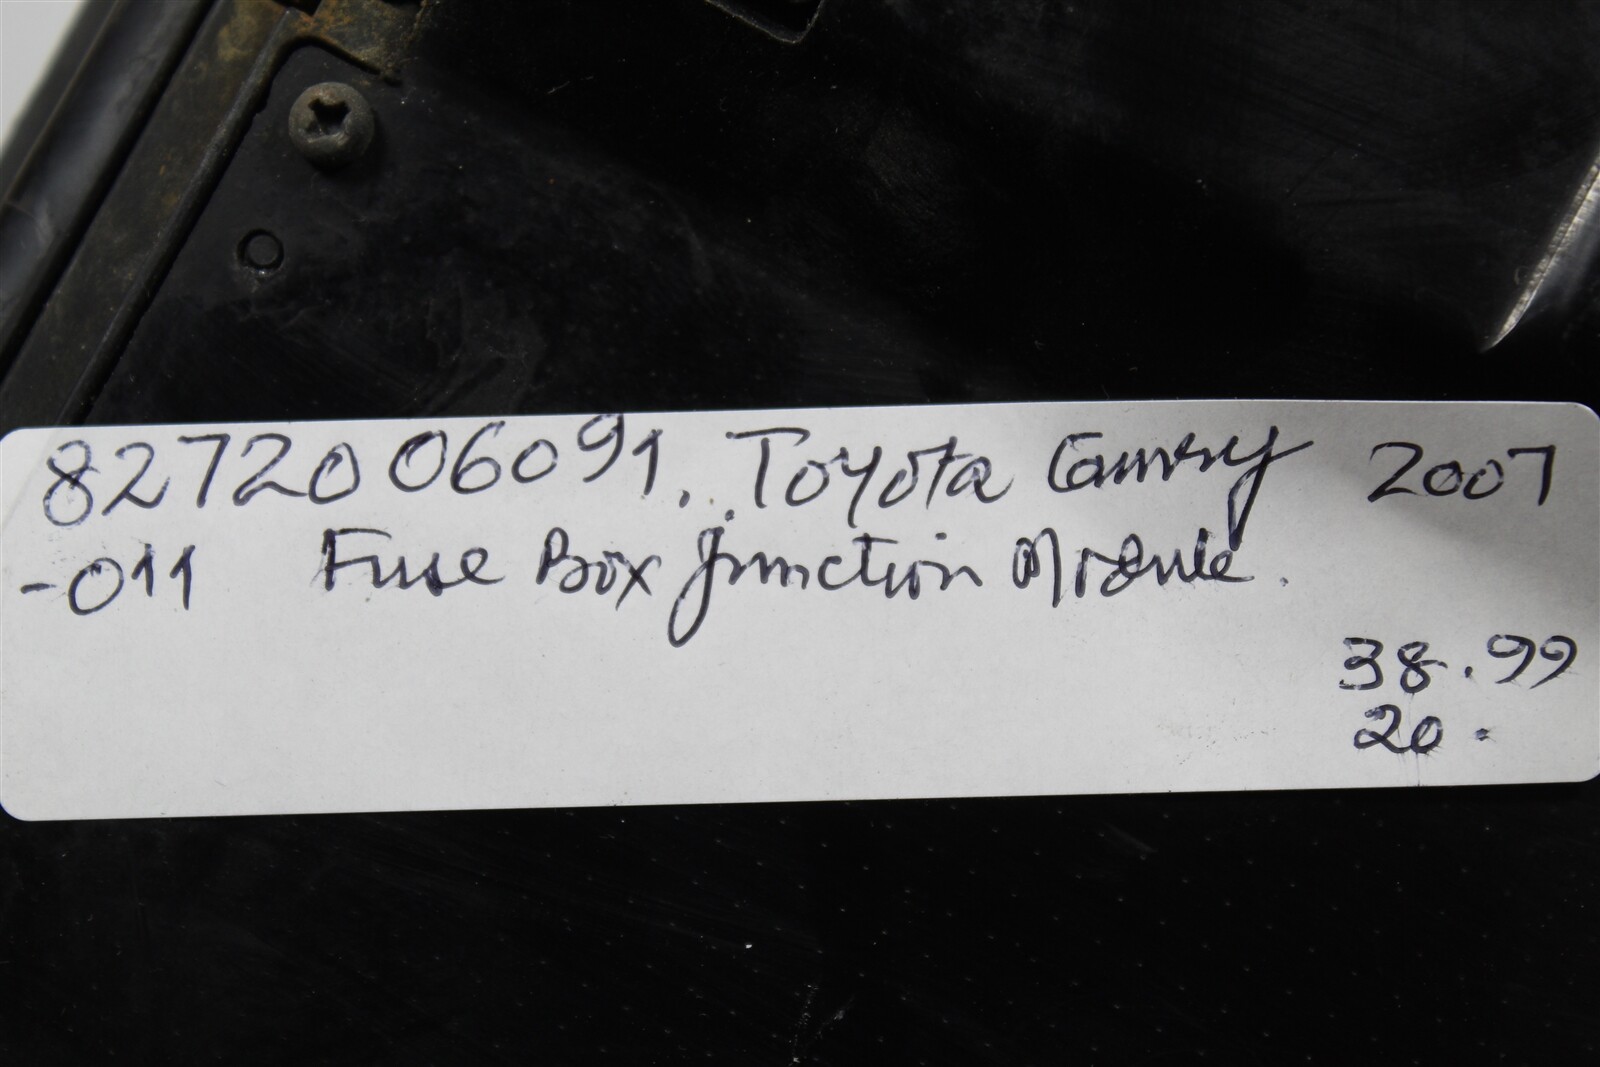 8272006091. Toyota Camry 2007
-011 Fuse Box Junction Module.
38.99
20.